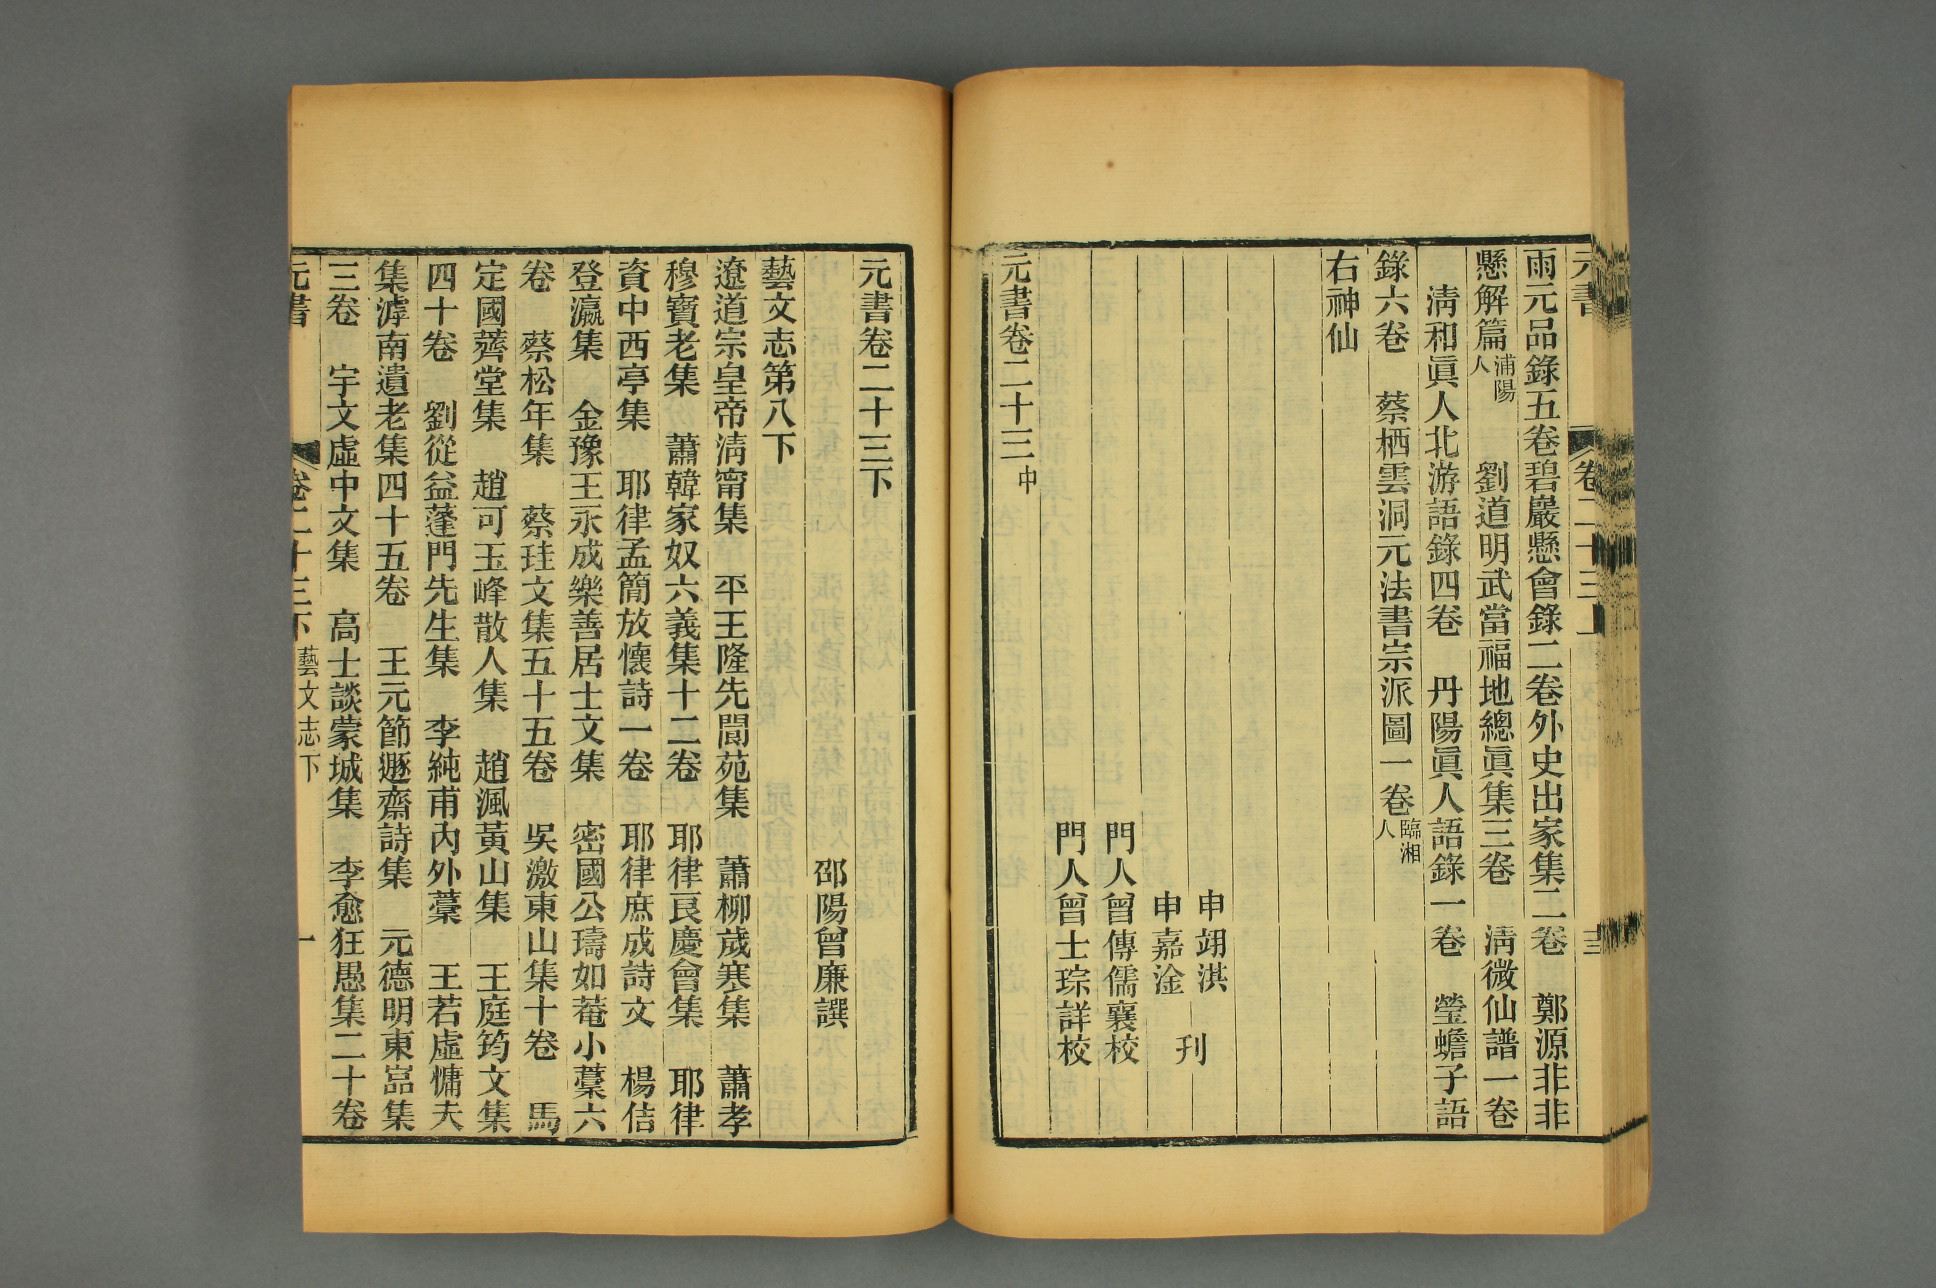 元書
卷二十三
三
雨元品錄五卷碧巖懸會錄二卷外史出家集二卷　鄭源非非
懸解篇浦陽人　劉道明武當福地總眞集三卷　淸微仙譜一卷
淸和眞人北游語錄四卷　丹陽眞人語錄一卷　瑩蟾子語
錄六卷　蔡栖雲洞元法書宗派圖一卷臨湘人
右神仙
申翊淇
申嘉淦
刊
門人曾傳儒襄校
門人曾士琮詳校
元書卷二十三中
元書卷二十三下
邵陽曾廉譔
藝文志第八下
遼道宗皇帝淸甯集　平王隆先閬苑集　蕭柳歲寒集　蕭孝
穆寶老集　蕭韓家奴六義集十二卷　耶律良慶會集　耶律
資中西亭集　耶律孟簡放懷詩一卷　耶律庶成詩文　楊佶
登瀛集　金豫王永成樂善居士文集　密國公璹如菴小藁六
卷　蔡松年集　蔡珪文集五十五卷　吳激東山集十卷　馬
定國薺堂集　趙可玉峰散人集　趙渢黃山集　王庭筠文集
四十卷　劉從益蓬門先生集　李純甫內外藁　王若虛慵夫
集滹南遺老集四十五卷　王元節遯齋詩集　元德明東嵓集
三卷　宇文虛中文集　高士談蒙城集　李愈狂愚集二十卷
元書
卷二十三下
藝文志下
一